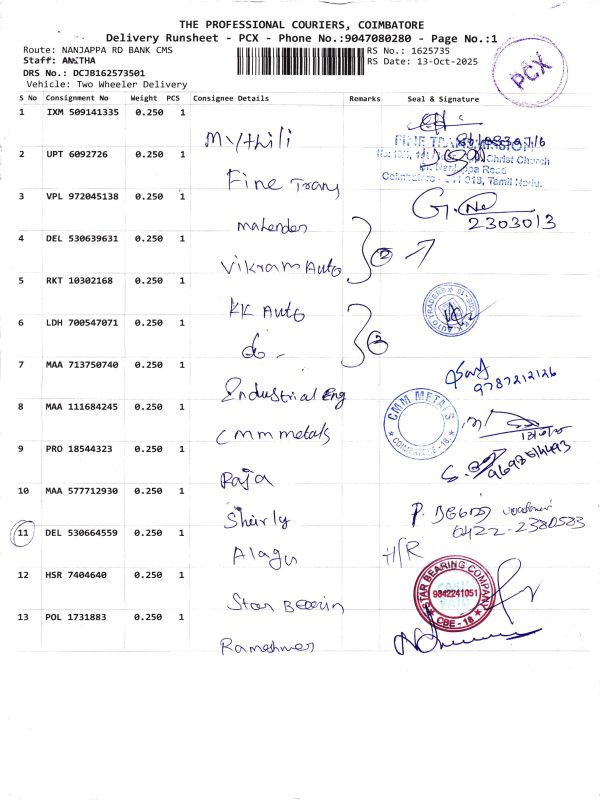 THE PROFESSIONAL COURIERS, COIMBATORE
Delivery Runsheet - PCX - Phone No.:9047080280 - Page No.:1
Route: NANJAPPA RD BANK CMS
RS No.: 1625735
Staff: ANITHA
RS Date: 13-Oct-2025
DRS No.: DCJB162573501
Vehicle: Two Wheeler Delivery
PCX
S No Consignment No Weight PCS Consignee Details Remarks Seal & Signature
1 IXM 509141335 0.250 1 Mythili
2 UPT 6092726 0.250 1 Fine Trans
Christ Church
Coimbatore - 641 018, Tamil Nadu.
3 VPL 972045138 0.250 1 Mahender
2303013
4 DEL 530639631 0.250 1 Vikram Auto 2
5 RKT 10302168 0.250 1 KK Auto
KK AUTO TRADERS
6 LDH 700547071 0.250 1 do - 2
7 MAA 713750740 0.250 1 Industrial Eng
9787212126
8 MAA 111684245 0.250 1 Cmm metals
CMM METALS
COIMBATORE - 18.
9 PRO 18544323 0.250 1 Raja
10 MAA 577712930 0.250 1 Sheirly
0422-2380583
11 DEL 530664559 0.250 1 Alagu H/R
12 HSR 7404640 0.250 1 Star Bearin
STAR BEARING COMPANY
9842241051
CBE - 18
13 POL 1731883 0.250 1 Rameshwer